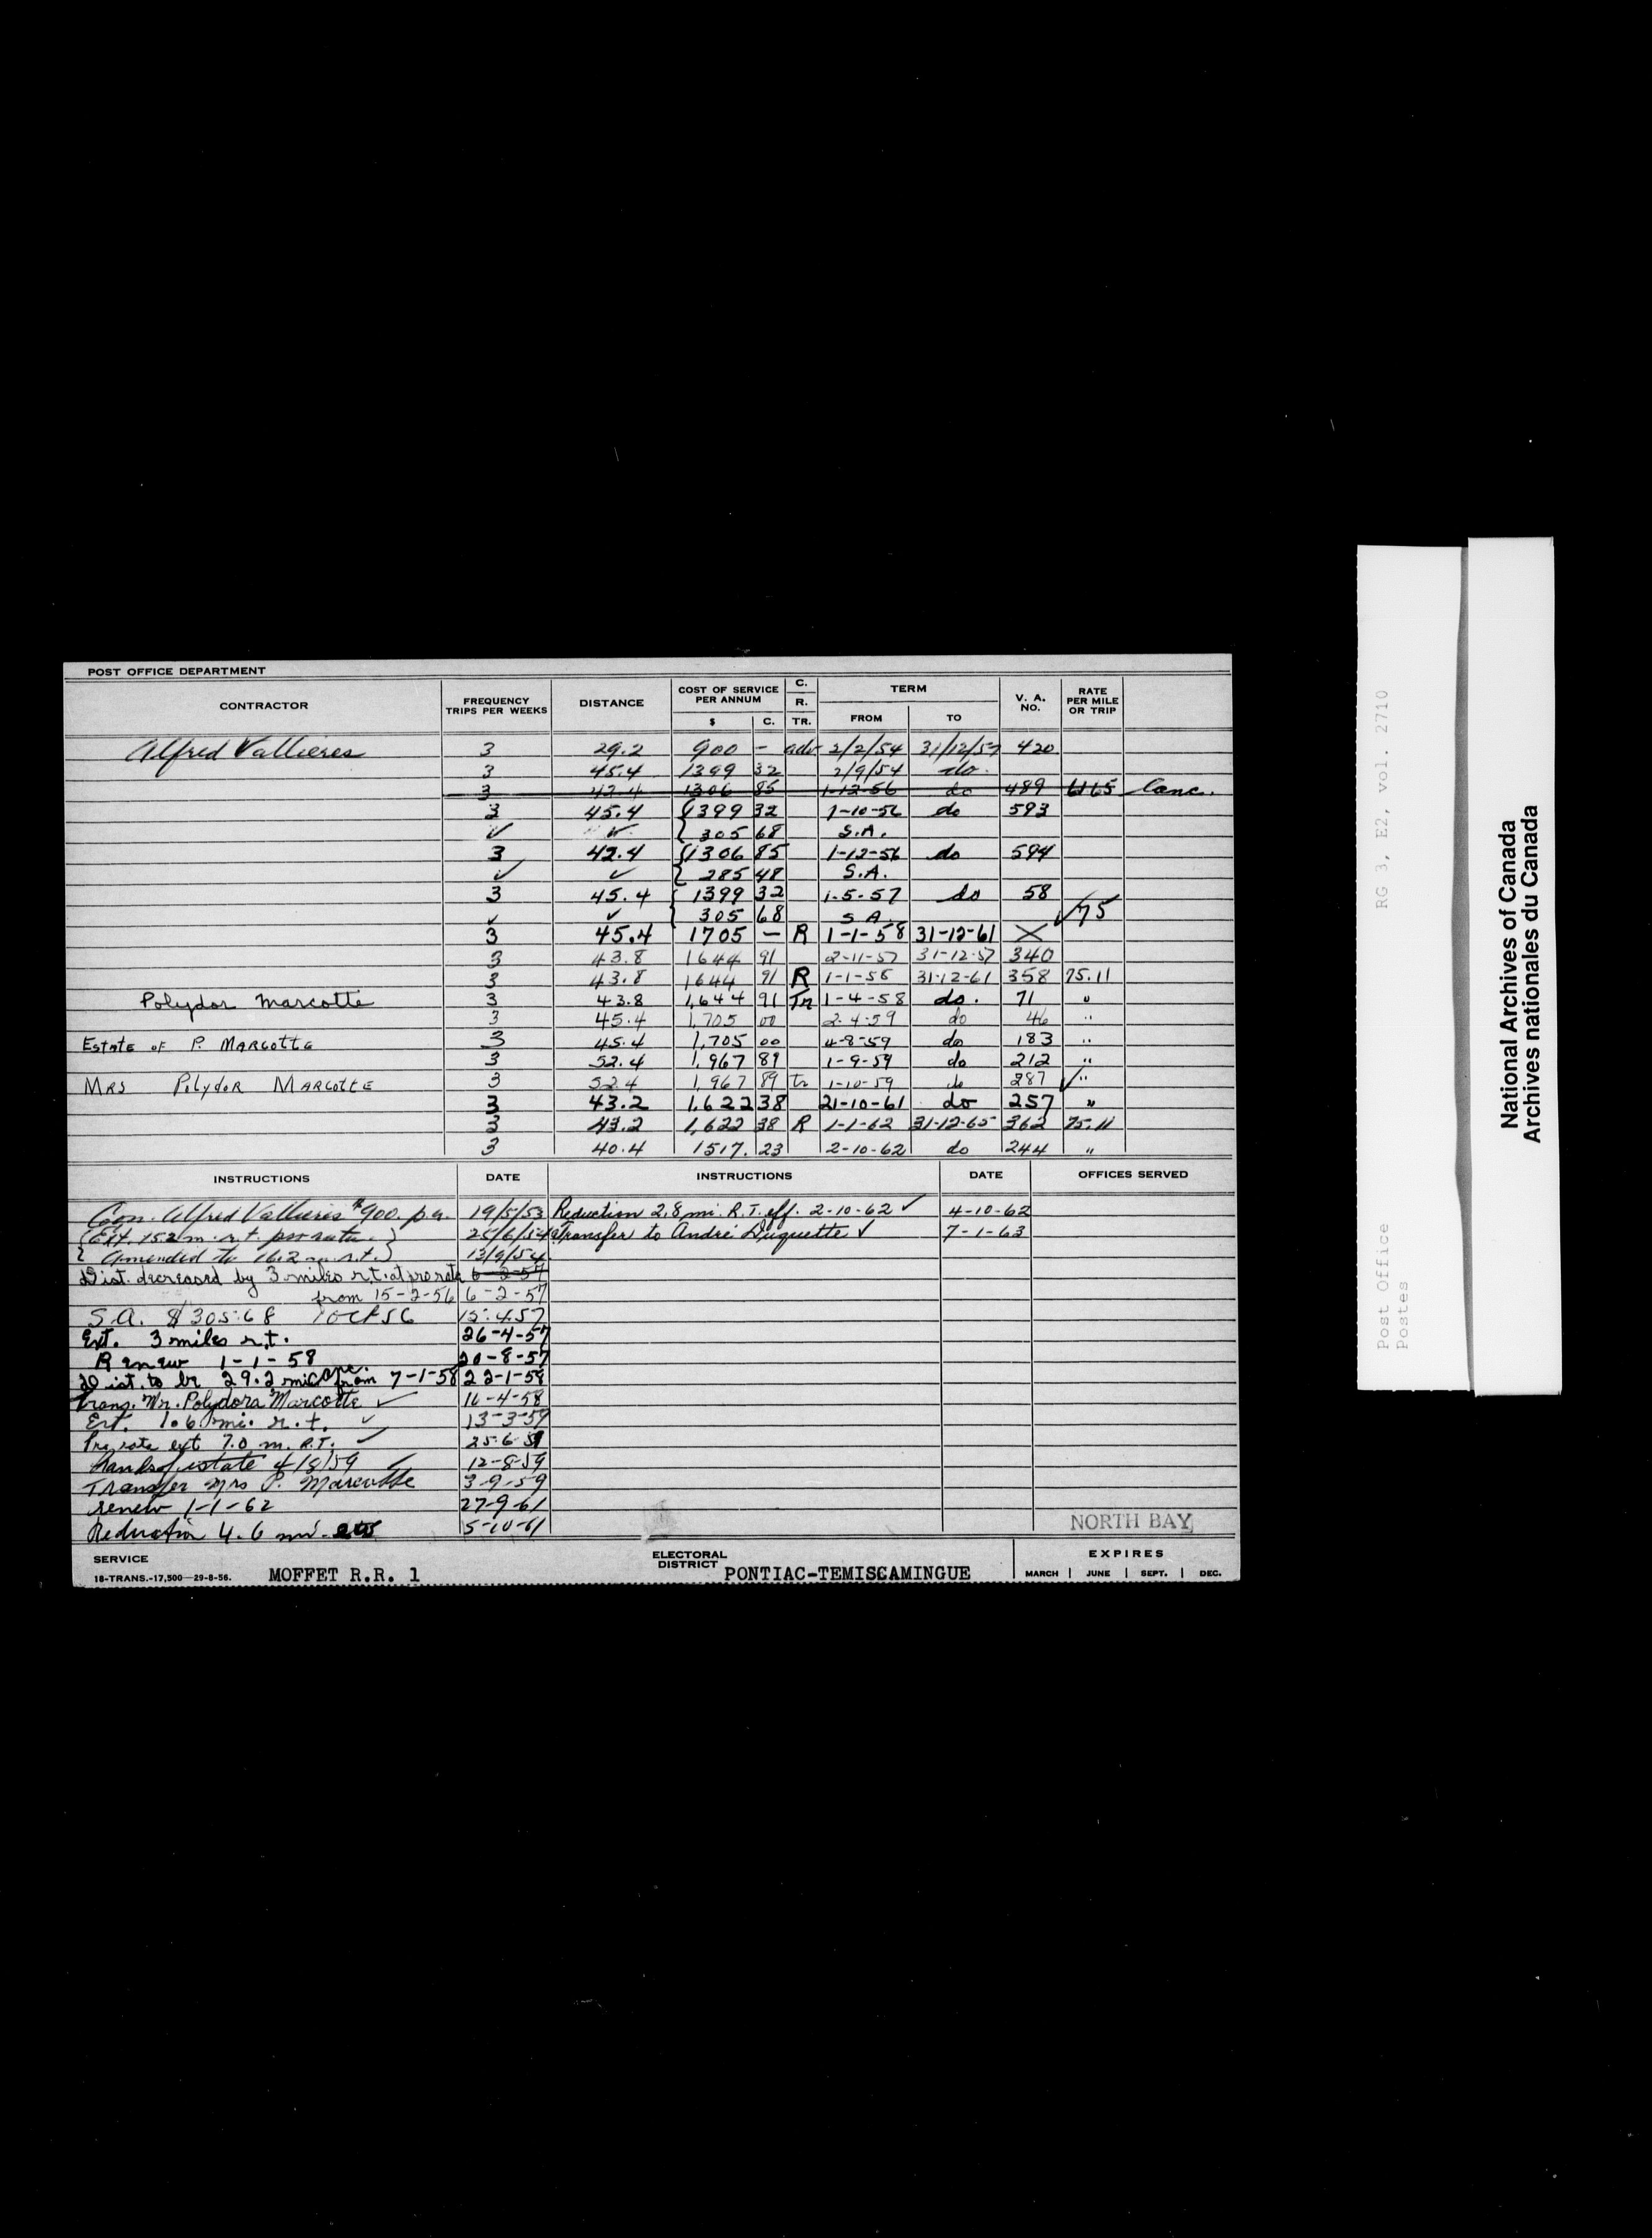 POST OFFICE DEPARTMENT
CONTRACTOR FREQUENCY TRIPS PER WEEKS DISTANCE COST OF SERVICE PER ANNUM $ C. C. R. TR. TERM FROM TO V. A. NO. RATE PER MILE OR TRIP
Alfred Vallieres 3 29.2 900 – adv 2/2/54 31/12/57 420
3 45.4 1399 32 2/9/54 do.
3 42.4 1306 85 1-12-56 do 489 Canc.
3 45.4 1399 32 1-10-56 do 593
✓ ✓ 305 68 S.A.
3 42.4 1306 85 1-12-56 do 594
✓ ✓ 285 48 S.A.
3 45.4 1399 32 1.5.57 do 58
✓ ✓ 305 68 S A. ✓75
3 45.4 1705 – R 1-1-58 31-12-61 X
3 43.8 1644 91 2-11-57 31-12-57 340
3 43.8 1644 91 R 1-1-58 31-12-61 358 75.11
Polydor Marcotte 3 43.8 1,644 91 Tr 1-4-58 do. 71 "
3 45.4 1,705 00 2-4-59 do 46 "
Estate of P. Marcotte 3 45.4 1,705 00 4-8-59 do 183 "
3 52.4 1,967 89 1-9-59 do 212 "
Mrs Polydor Marcotte 3 52.4 1,967 89 tr 1-10-59 do 287 ✓"
3 43.2 1,622 38 21-10-61 do 257 "
3 43.2 1,622 38 R 1-1-62 31-12-65 362 75.11
3 40.4 1517. 23 2-10-62 do 244 "
INSTRUCTIONS DATE INSTRUCTIONS DATE OFFICES SERVED
Con. Alfred Vallieres $900. p.a. 19/5/53 Reduction 2.8 mi. R.T. eff. 2-10-62 ✓ 4-10-62
(Ext. 15.2 m. r.t. pro rata.) 25/6/54 Transfer to André Duquette ✓ 7-1-63
Amended to 16.2 m. r.t. 13/9/54
Dist. decreased by 3 miles r.t. at pro rata 6-2-57
from 15-2-56 6-2-57
S.A. $305.68 1 Oct 56 15.4.57
Ext. 3 miles r.t. 26-4-57
Renew 1-1-58 20-8-57
Dist. to be 29.2 mi from 7-1-58 22-1-58
Trans. Mr. Polydora Marcotte ✓ 16-4-58
Ext. 1.6 mi. r.t. ✓ 13-3-59
Pro rata ext 7.0 m. R.T. ✓ 25-6-59
estate 4/8/59 12-8-59
Transfer Mrs P. Marcotte 3-9-59
renew 1-1-62 27-9-61
Reduction 4.6 mi. 5-10-61
NORTH BAY
SERVICE MOFFET R.R. 1 ELECTORAL DISTRICT PONTIAC-TEMISCAMINGUE EXPIRES
18-TRANS.-17,500—29-8-56. MARCH JUNE SEPT. DEC.
RG 3, E2, vol. 2710
Post Office
Postes
National Archives of Canada
Archives nationales du Canada